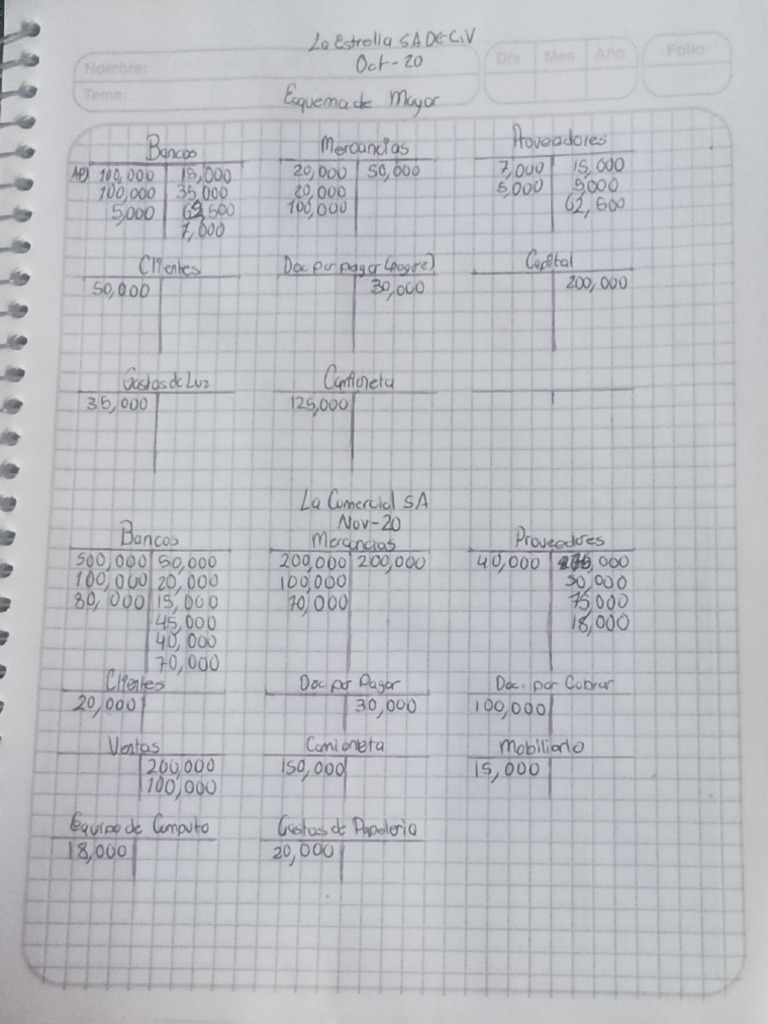 La Estrella SA DE C.V
Oct - 20
Nombre: Día Mes Año Folio
Tema:
Esquema de Mayor
Bancos Mercancias Proveedores
100,000 15,000 20,000 50,000 7,000 15,000
100,000 35,000 20,000 5,000 5,000
5,000 62,500 100,000 62,500
7,000
Clientes Doc por pagar (pagare) Capital
50,000 30,000 200,000
Gastos de Luz Camioneta
35,000 125,000
La Comercial SA
Nov - 20
Bancos Mercancias Proveedores
500,000 50,000 200,000 200,000 40,000
100,000 20,000 100,000 30,000
80,000 15,000 70,000 75,000
45,000 18,000
40,000
70,000
Clientes Doc por Pagar Doc. por Cobrar
20,000 30,000 100,000
Ventas Camioneta Mobiliario
200,000 150,000 15,000
100,000
Equipo de Computo Gastos de Papeleria
18,000 20,000